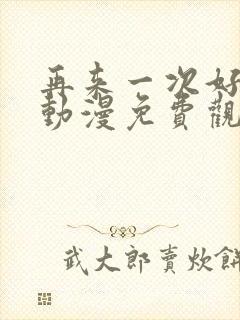 再来一次好
動漫免費觀
武大郎賣炊餅